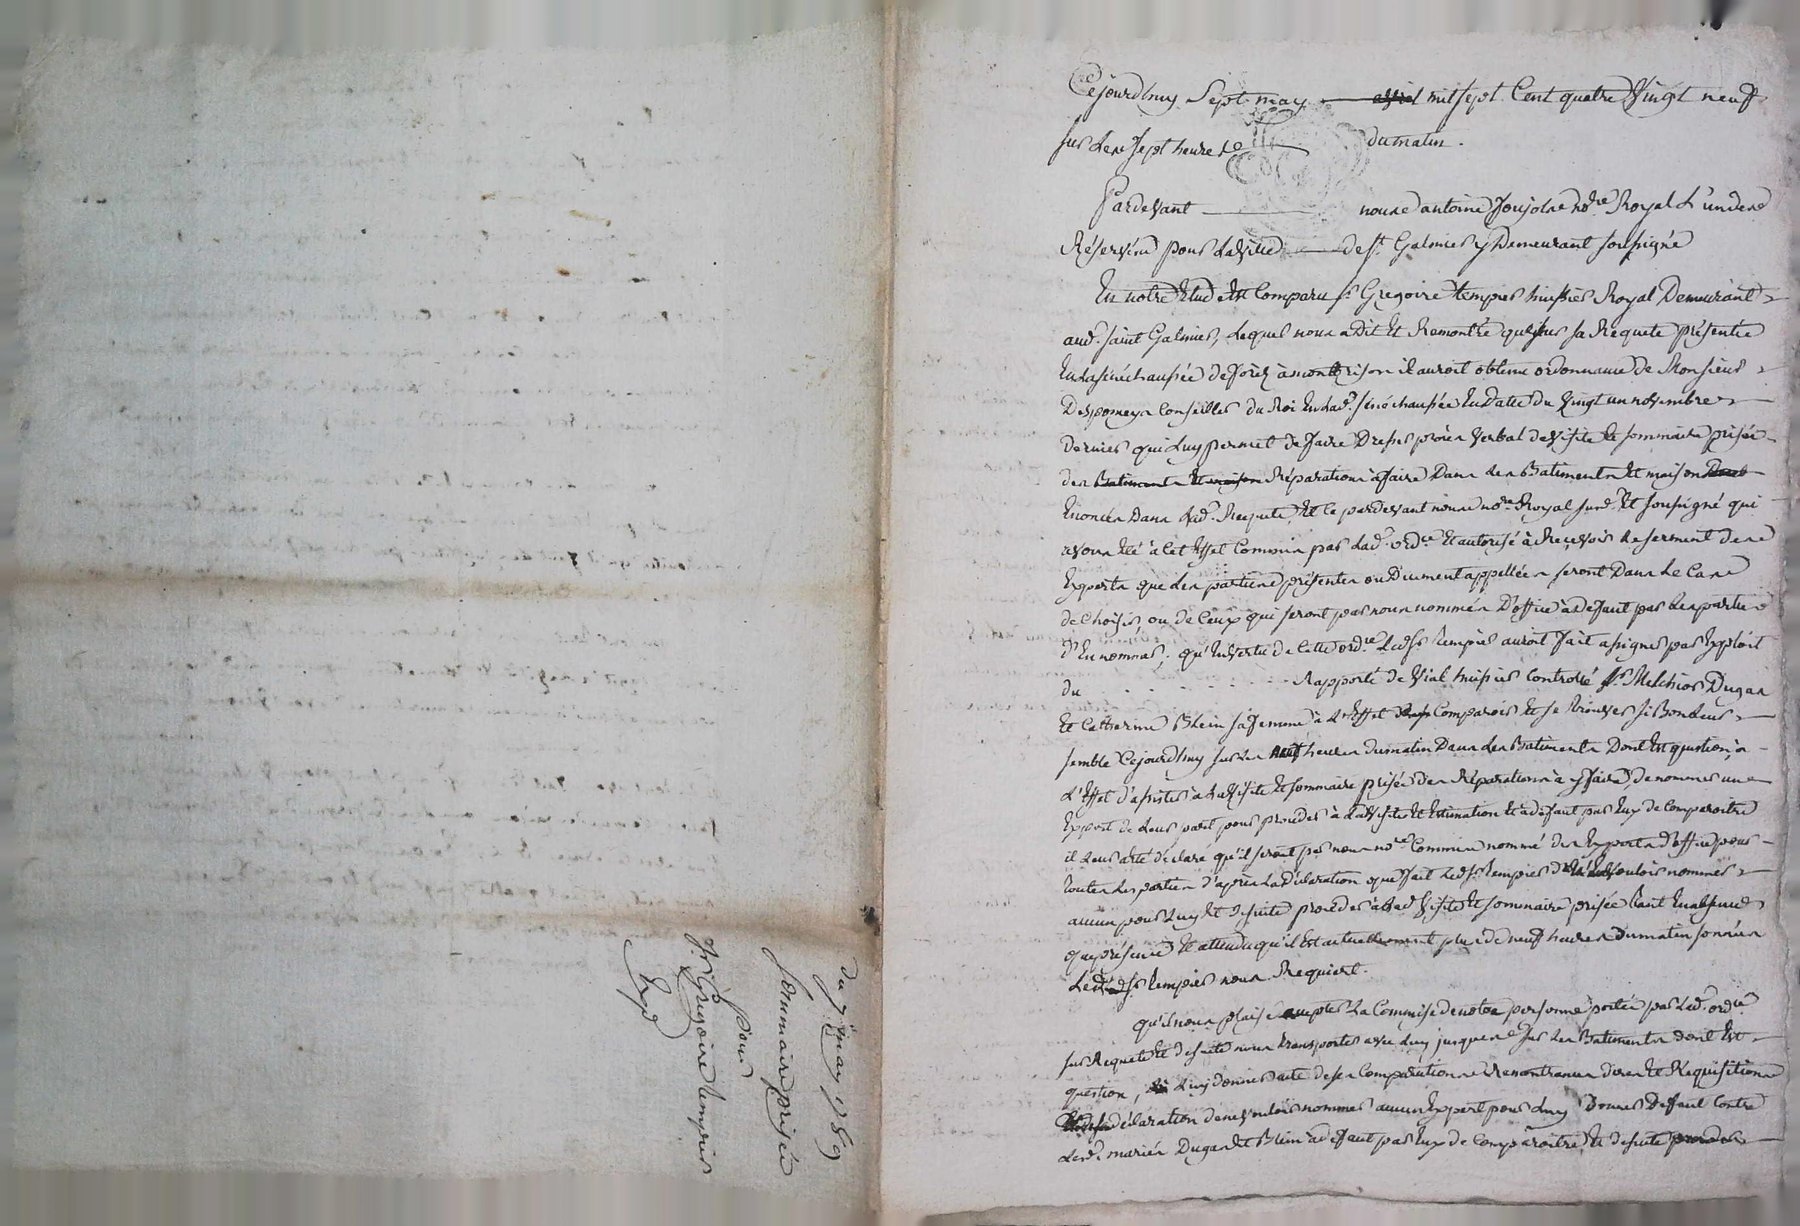 du 7 may 1789
Sommaire prisée
Pour
Sr Grégoire tempier
Exp.
Cejourdhuy Sept may avril mil sept Cent quatre Vingt neuf
sur Les sept heures du matin.
Pardevant nous antoine Jousjolre nore Royal L'un des
Réservés pour La Ville de St Galmier y Demeurant soussigné
En notre Etude Est Comparu sr Gregoire tempier huissier Royal Demeurant
aud. saint Galmier, Lequel nous a Dit Et Remontré que sur sa Requete présentée
En La sénéchaussée de forèz à montbrison il auroit obtenu ordonnance de Monsieur
Despomeys Conseiller du Roi En Lad. sénéchaussée En Date du Vingt un novembre
dernier qui Luy permet de faire Dresser procès Verbal de Visite Et sommaire prisée
des Batiments Et maison Réparations à faire Dans Les Batiments Et maison
Enoncés Dans Lad. Requete, Et ce pardevant nous nore Royal susd. Et soussigné qui
avons Eté à Cet Effet Commis par Lad. ordce Et autorisé à Recevoir Le serment des
Experts que Les parties présentes ou Duement appellées seront Dans Le Cas
de Choisir, ou de Ceux qui seront par nous nommés D'office à défaut par Les parties
d'En nommer; qu'En Vertu de Cette ordce Led. sr tempier auroit fait assigner par Exploit
du Rapporté de Vial huissier Controllé sr Melchior Dugas
Et Catherine Blein sa femme à L'Effet de Comparoir Et se trouver si Bon Leur
semble Cejourdhuy sur Les neuf heures du matin Dans Les Batiments Dont Est question, à
L'Effet d'assister à La Visite Et sommaire prisée des Réparations à y faire, de nommer un
Expert de Leur part pour proceder à La Visite Et Estimation Et à défaut par Eux de Comparoitre
il Leur a été déclaré qu'il seroit par nous nore Commis nommé des Experts d'office pour
toutes Les parties d'après La Déclaration que fait Led. sr tempier de ne Vouloir nommer
aucun pour Luy Et de suite proceder à Lad. Visite Et sommaire prisée tant En absence
que présence Et attendu qu'il Est actuellement plus de neuf heures du matin sonnées
Led. sr tempier nous Requiert.
qu'il nous plaise accepter La Commise de notre personne portée par Lad. ordce
sur Requete Et de suite nous transporter avec Luy jusques sur Les Batiments dont Est
question, Luy donner acte de ses Comparution Remontrances dires Et Réquisitions
déclaration de ne Vouloir nommer aucun Expert pour Luy Donner Deffaut Contre
Lesd. mariés Dugas Et Blein à défaut par Eux de Comparoitre Et de suite proceder